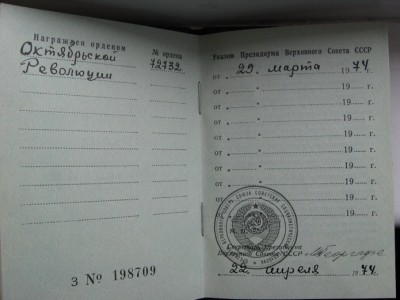 Награжден орденом
№ ордена
Октябрьской
72732
Революции
З № 198709
Указом Президиума Верховного Совета СССР
от 29. марта 1974 г.
от " 19 г.
от " 19 г.
от " 19 г.
от " 19 г.
от " 19 г.
от " 19 г.
от " 19 г.
от " 19 г.
от " 19 г.
М. П.
Секретарь Президиума
Верховного Совета СССР
22. апреля 1974 г.